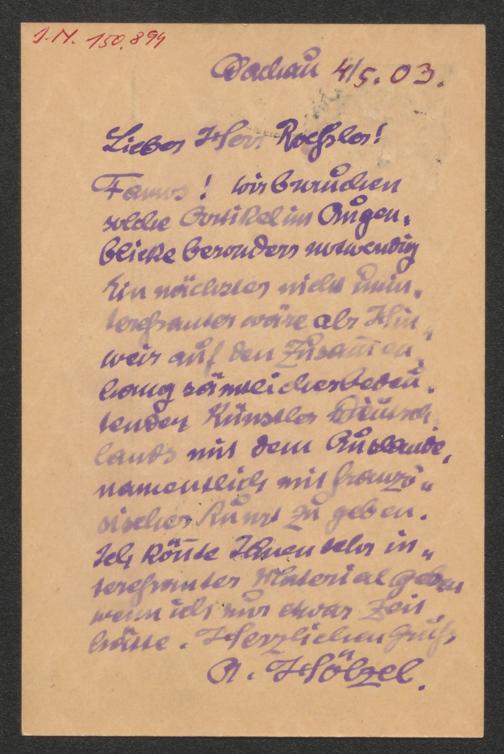 J.N. 150.894
Dachau 4/5. 03.
Lieber Herr Roeßler!
Famos! wir brauchen
solche Artikel im Augen„
blicke besonders notwendig
Ein nächstes nicht unin„
tereßantes wäre als Hin„
weis auf den Zusammen„
hang sämtlicher bedeu„
tenden Künstler Deutsch„
lands mit dem Auslande,
namentlich mit franzö„
sischer Kunst zu geben.
Ich könte Ihnen sehr in„
tereßantes Material geben
wenn ich nur etwas Zeit
hätte. Herzlichen Gruß
A. Hölzel.